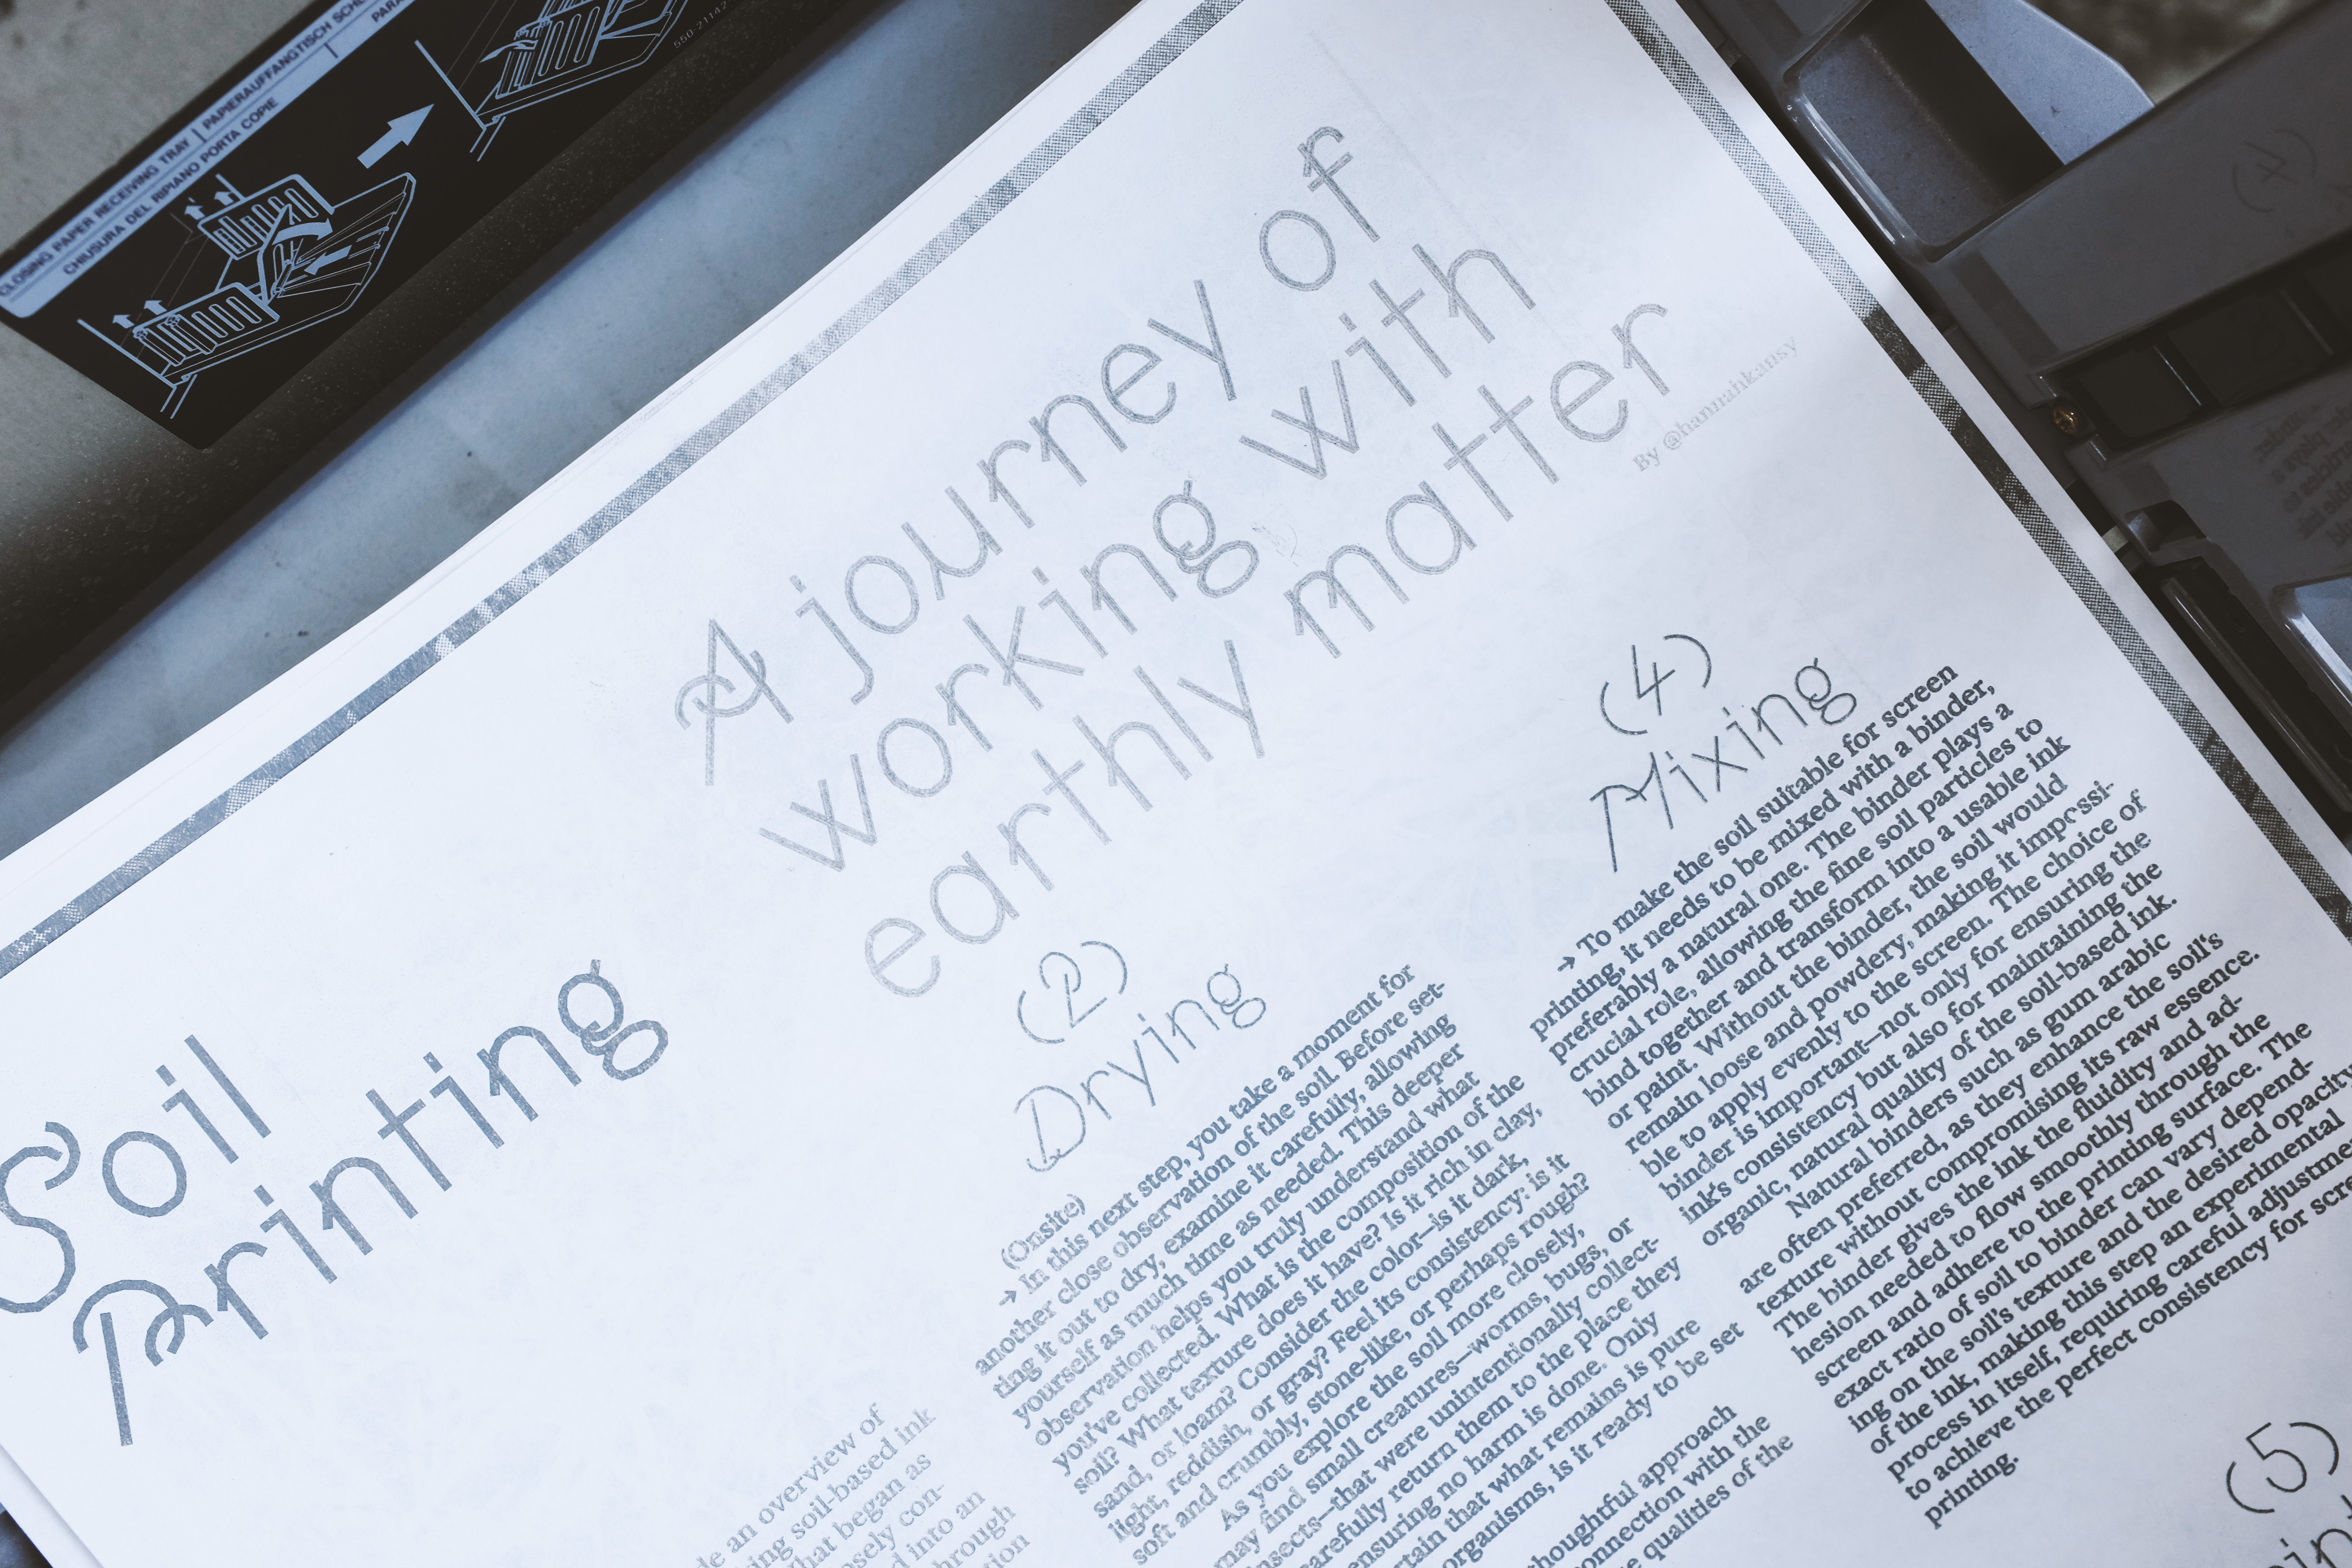 CLOSING PAPER RECEIVING TRAY | PAPIERAUFFANGTISCH
CHIUSURA DEL RIPIANO PORTA COPIE |
550-21142
Soil
Printing
A journey of
working with
earthly matter
By @hannahkansy
de an overview of
soil-based ink
what began as
into an
through
(2)
Drying
(Onsite)
→ In this next step, you take a moment for
another close observation of the soil. Before set-
ting it out to dry, examine it carefully, allowing
yourself as much time as needed. This deeper
observation helps you truly understand what
you've collected. What is the composition of the
soil? What texture does it have? Is it rich in clay,
sand, or loam? Consider the color—is it dark,
light, reddish, or gray? Feel its consistency: is it
soft and crumbly, stone-like, or perhaps rough?
As you explore the soil more closely,
may find small creatures—worms, bugs, or
insects—that were unintentionally collect-
carefully return them to the place they
ensuring no harm is done. Only
that what remains is pure
organisms, is it ready to be set
thoughtful approach
connection with the
qualities of the
(4)
Mixing
→ To make the soil suitable for screen
printing, it needs to be mixed with a binder,
preferably a natural one. The binder plays a
crucial role, allowing the fine soil particles to
bind together and transform into a usable ink
or paint. Without the binder, the soil would
remain loose and powdery, making it impossi-
ble to apply evenly to the screen. The choice of
binder is important—not only for ensuring the
ink's consistency but also for maintaining the
organic, natural quality of the soil-based ink.
Natural binders such as gum arabic
are often preferred, as they enhance the soil's
texture without compromising its raw essence.
The binder gives the ink the fluidity and ad-
hesion needed to flow smoothly through the
screen and adhere to the printing surface. The
exact ratio of soil to binder can vary depend-
ing on the soil's texture and the desired opacity
of the ink, making this step an experimental
process in itself, requiring careful adjustme
to achieve the perfect consistency for scre
printing.
(5)